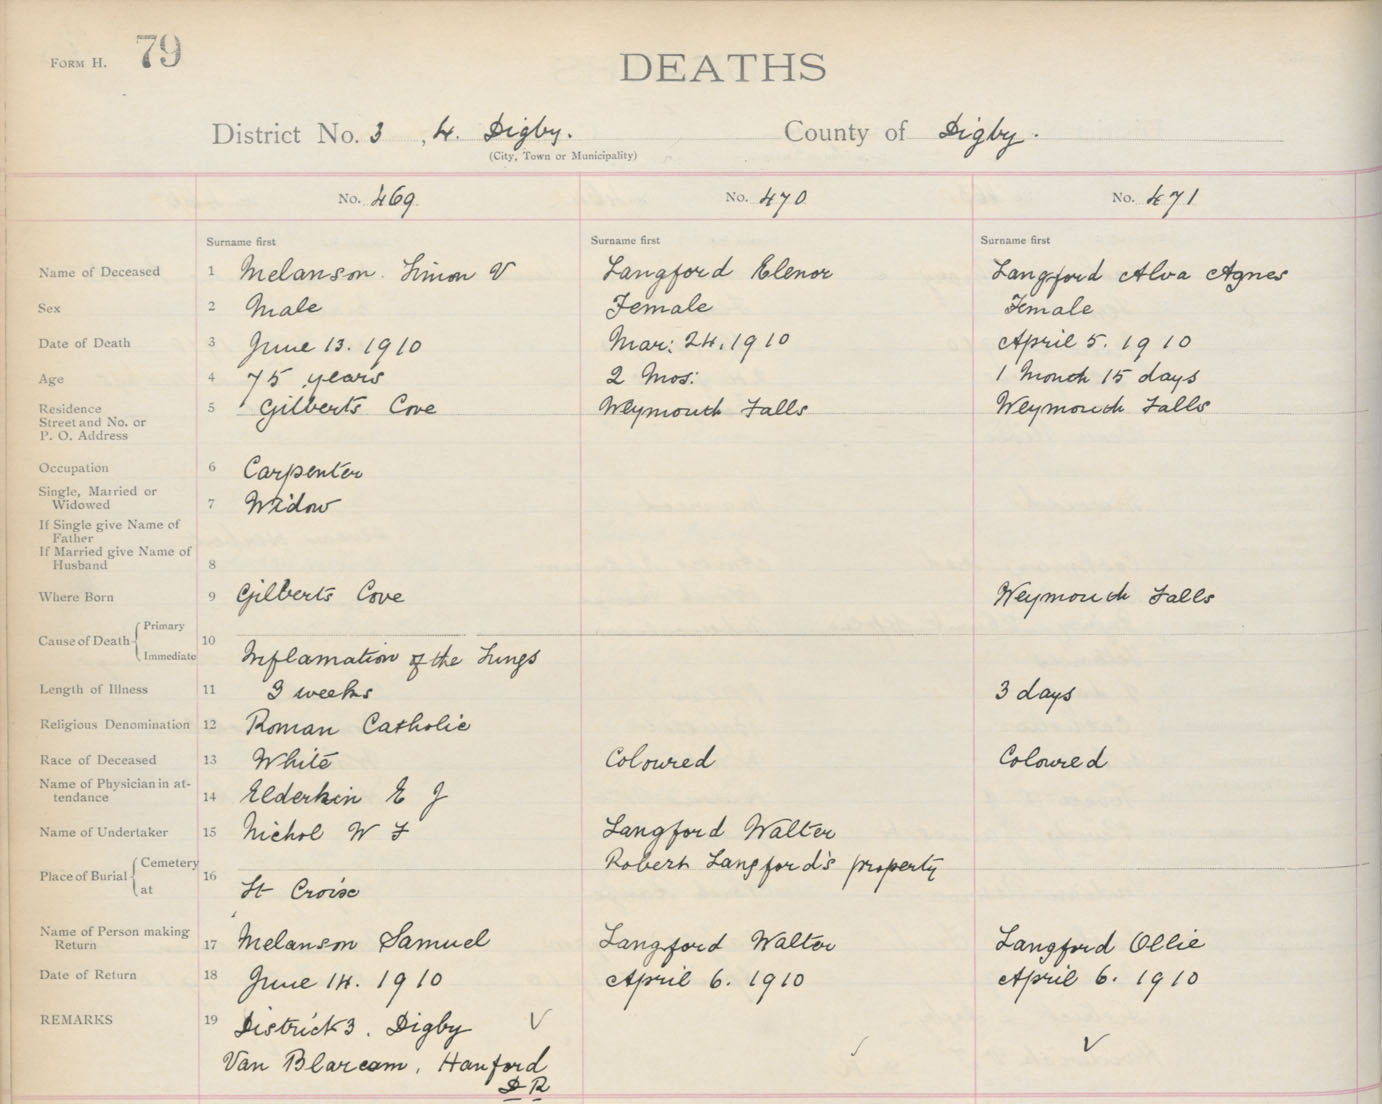 FORM H. 79
DEATHS
District No. 3 , 4. Digby. County of Digby.
(City, Town or Municipality)
No. 469 No. 470 No. 471
Surname first Surname first Surname first
Name of Deceased 1 Melanson Simon V Langford Elenor Langford Alva Agnes
Sex 2 Male Female Female
Date of Death 3 June 13. 1910 Mar: 24. 1910 April 5. 1910
Age 4 75 years 2 Mos: 1 Month 15 days
Residence 5 Gilberts Cove Weymouth Falls Weymouth Falls
Street and No. or
P. O. Address
Occupation 6 Carpenter
Single, Married or
Widowed 7 Widow
If Single give Name of
Father
If Married give Name of
Husband 8
Where Born 9 Gilberts Cove Weymouth Falls
Cause of Death Primary 10
Immediate Inflamation of the Lungs
Length of Illness 11 3 weeks 3 days
Religious Denomination 12 Roman Catholic
Race of Deceased 13 White Coloured Coloured
Name of Physician in at-
tendance 14 Elderkin E J
Name of Undertaker 15 Nichol W F Langford Walter
Place of Burial Cemetery 16 Robert Langford's property
at St Croix
Name of Person making
Return 17 Melanson Samuel Langford Walter Langford Ollie
Date of Return 18 June 14. 1910 April 6. 1910 April 6. 1910
REMARKS 19 District 3. Digby
Van Blarcom, Hanford
D R